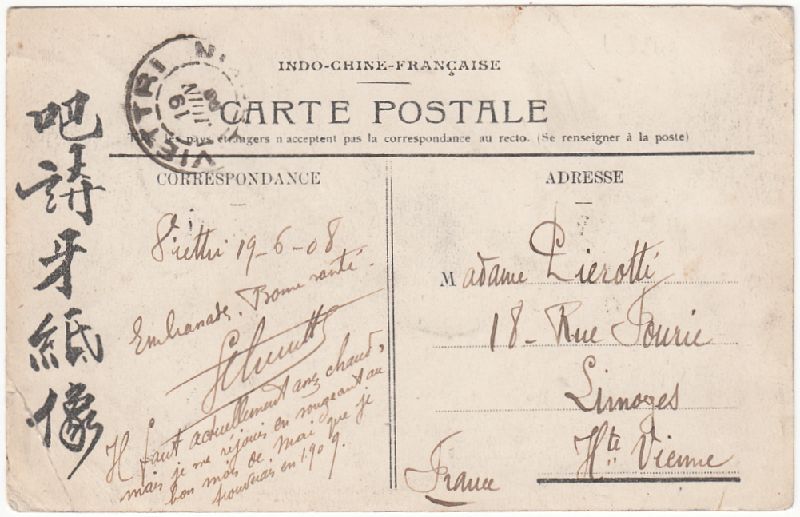 INDO-CHINE-FRANÇAISE
CARTE POSTALE
pays étrangers n'acceptent pas la correspondance au recto. (Se renseigner à la poste)
VIETTRI
19 JUIN 08
CORRESPONDANCE
Viettri 19-6-08
Embrassades. Bonne santé.
Il faut actuellement assez chaud,
mais je me réjouis en songeant au
bon mois de mai que je
passerai en 1909.
ADRESSE
Madame Pierotti
18 - Rue Fourie
Limoges
Hte Vienne
France
吧
請
牙
紙
像